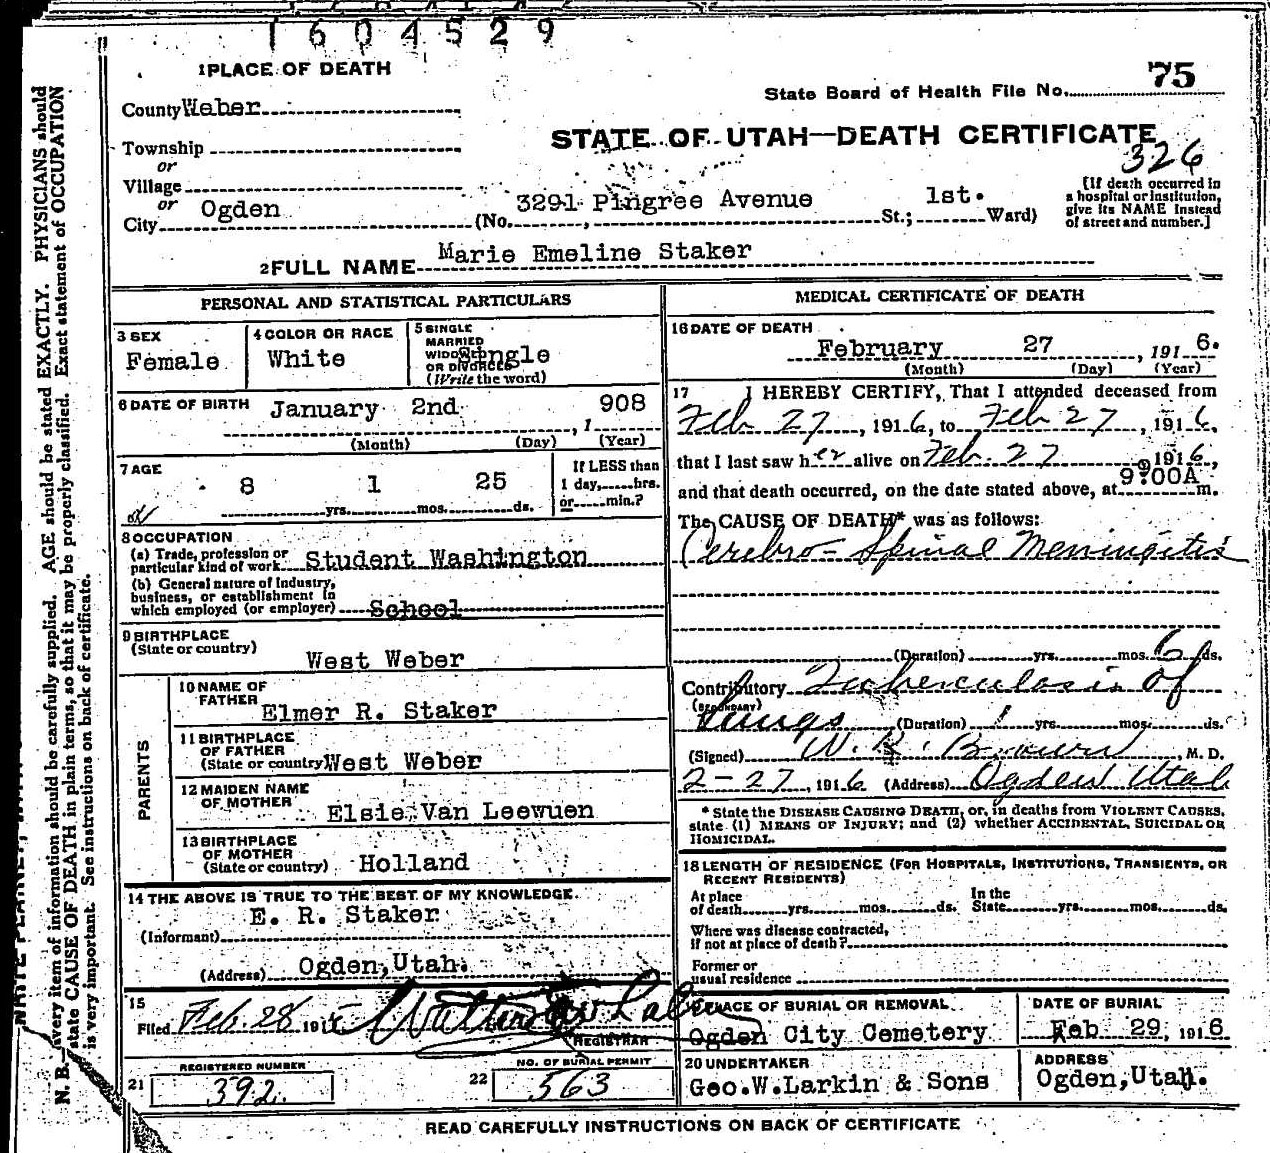 1604529
1 PLACE OF DEATH
County Weber
Township
or
Village
or
City Ogden
State Board of Health File No. 75
STATE OF UTAH—DEATH CERTIFICATE
326
(No. 3291 Pingree Avenue St.; 1st. Ward)
[If death occurred in
a hospital or institution,
give its NAME instead
of street and number.]
2 FULL NAME Marie Emeline Staker
PERSONAL AND STATISTICAL PARTICULARS
3 SEX
Female
4 COLOR OR RACE
White
5 SINGLE
MARRIED
WIDOWED
OR DIVORCED
(Write the word)
Single
6 DATE OF BIRTH January 2nd, 1908
(Month) (Day) (Year)
7 AGE
8 yrs. 1 mos. 25 ds.
If LESS than
1 day, hrs.
or min.?
8 OCCUPATION
(a) Trade, profession or
particular kind of work Student Washington
(b) General nature of industry,
business, or establishment in
which employed (or employer) School
9 BIRTHPLACE
(State or country)
West Weber
PARENTS
10 NAME OF
FATHER
Elmer R. Staker
11 BIRTHPLACE
OF FATHER
(State or country) West Weber
12 MAIDEN NAME
OF MOTHER
Elsie Van Leewuen
13 BIRTHPLACE
OF MOTHER
(State or country) Holland
14 THE ABOVE IS TRUE TO THE BEST OF MY KNOWLEDGE.
E. R. Staker
(Informant)
(Address) Ogden, Utah.
15
Filed Feb. 28 191
REGISTRAR
REGISTERED NUMBER
21 392.
NO. OF BURIAL PERMIT
22 563
MEDICAL CERTIFICATE OF DEATH
16 DATE OF DEATH
February 27, 1916.
(Month) (Day) (Year)
17 I HEREBY CERTIFY, That I attended deceased from
Feb 27, 1916, to Feb 27, 1916,
that I last saw her alive on Feb. 27 1916,
and that death occurred, on the date stated above, at 9:00A m.
The CAUSE OF DEATH* was as follows:
Cerebro-Spinal Meningitis
(Duration) yrs. mos. 6 ds.
Contributory Tuberculosis of
(SECONDARY)
Lungs (Duration) 1 yrs. mos. ds.
(Signed) W. R. Brown M. D.
2-27, 1916 (Address) Ogden Utah
* State the DISEASE CAUSING DEATH, or, in deaths from VIOLENT CAUSES,
state (1) MEANS OF INJURY; and (2) whether ACCIDENTAL, SUICIDAL OR
HOMICIDAL.
18 LENGTH OF RESIDENCE (FOR HOSPITALS, INSTITUTIONS, TRANSIENTS, OR
RECENT RESIDENTS)
At place
of death yrs. mos. ds.
In the
State yrs. mos. ds.
Where was disease contracted,
if not at place of death?
Former or
usual residence
19 PLACE OF BURIAL OR REMOVAL
Ogden City Cemetery
DATE OF BURIAL
Feb 29, 1916
20 UNDERTAKER
Geo.W.Larkin & Sons
ADDRESS
Ogden, Utah.
READ CAREFULLY INSTRUCTIONS ON BACK OF CERTIFICATE
N. B.—every item of information should be carefully supplied. AGE should be stated EXACTLY. PHYSICIANS should
state CAUSE OF DEATH in plain terms, so that it may be properly classified. Exact statement of OCCUPATION
is very important. See instructions on back of certificate.